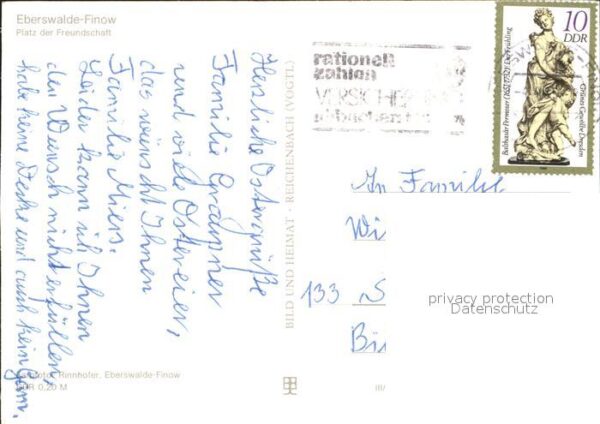 Eberswalde-Finow
Platz der Freundschaft
Herzliche Ostergrüße
Familie Graupner
und viele Ostereier,
das wünscht Ihnen
Familie Miers.
Leider kann ich Ihnen
den Wunsch nicht erfüllen,
habe keine Decke und auch kein Garn.
Rinnhofer, Eberswalde-Finow
0,20 M
BILD UND HEIMAT · REICHENBACH (VOGTL)
III/
rationell
zahlen
10
DDR
Balthasar Permoser (1651-1732) Der Frühling
Grünes Gewölbe Dresden
An Familie
Wi
133 S
Bi
privacy protection
Datenschutz